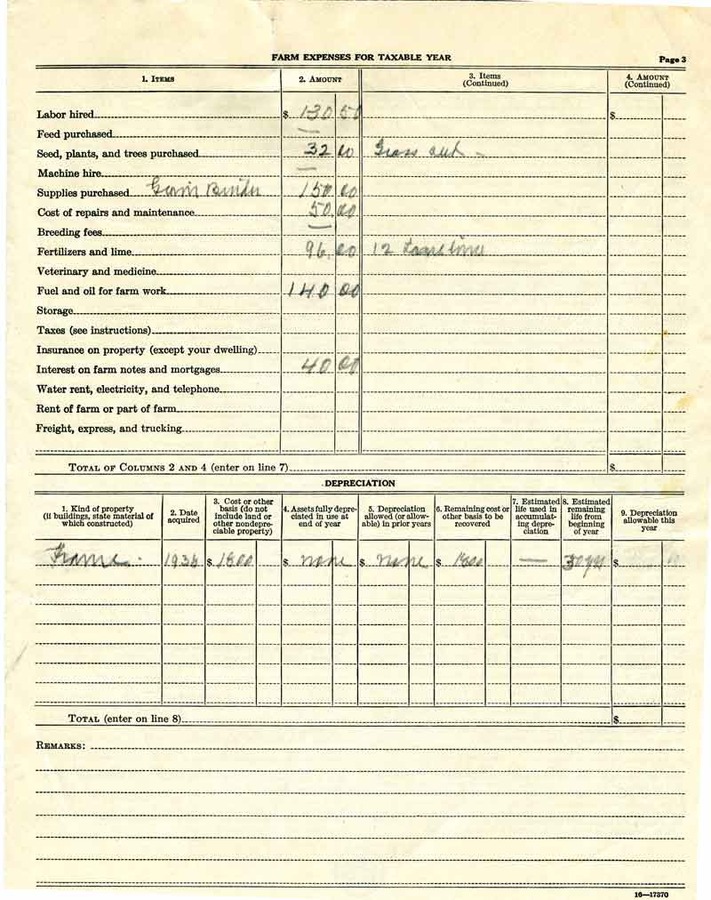 FARM EXPENSES FOR TAXABLE YEAR
Page 3
1. ITEMS 2. AMOUNT 3. Items (Continued) 4. AMOUNT (Continued)
Labor hired $ 130 50 $
Feed purchased —
Seed, plants, and trees purchased 32 00 Grass
Machine hire —
Supplies purchased 150 00
Cost of repairs and maintenance 50.00
Breeding fees —
Fertilizers and lime 96.00 12
Veterinary and medicine
Fuel and oil for farm work 140 00
Storage
Taxes (see instructions)
Insurance on property (except your dwelling)
Interest on farm notes and mortgages 40 00
Water rent, electricity, and telephone
Rent of farm or part of farm
Freight, express, and trucking
TOTAL OF COLUMNS 2 AND 4 (enter on line 7) $
DEPRECIATION
1. Kind of property (if buildings, state material of which constructed)
2. Date acquired
3. Cost or other basis (do not include land or other nondepreciable property)
4. Assets fully depreciated in use at end of year
5. Depreciation allowed (or allowable) in prior years
6. Remaining cost or other basis to be recovered
7. Estimated life used in accumulating depreciation
8. Estimated remaining life from beginning of year
9. Depreciation allowable this year
Frame. $ $ none $ none $ — $
TOTAL (enter on line 8) $
REMARKS:
16—17370